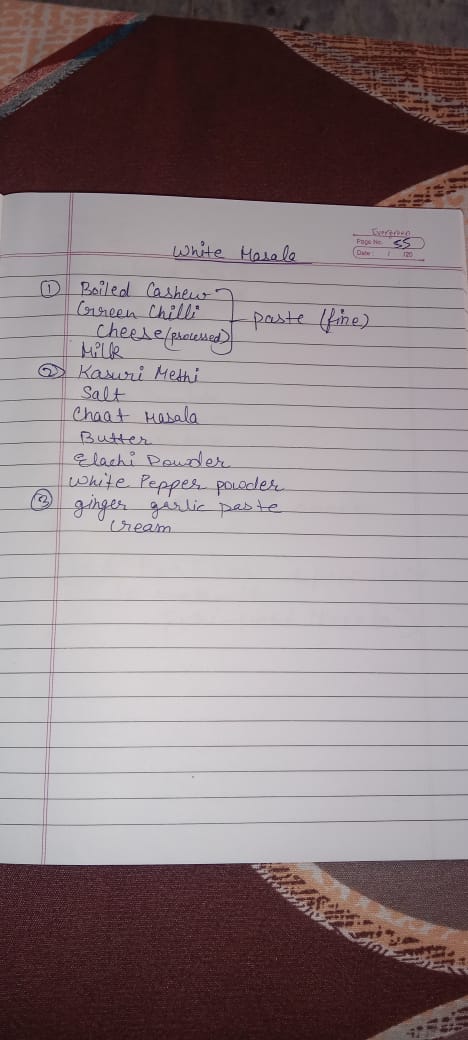 Evergreen
Page No. 55
Date: / /20
White Masala
① Boiled Cashew
Green Chilli
Cheese (processed)
Milk
paste (fine)
② Kasuri Methi
Salt
Chaat Masala
Butter
Elachi Powder
White Pepper powder
③ ginger garlic paste
Cream